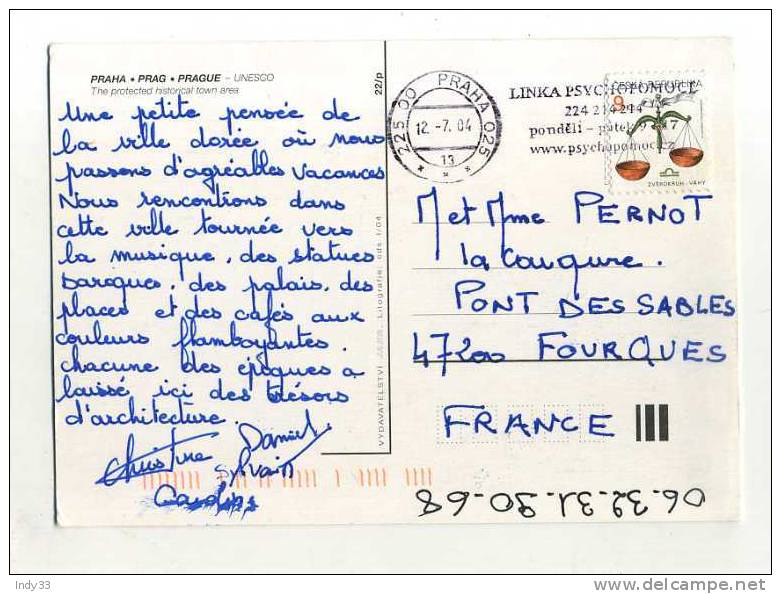 PRAHA • PRAG • PRAGUE – UNESCO
The protected historical town area
22/p
Une petite pensée de
la ville dorée où nous
passons d'agréables vacances
Nous rencontrons dans
cette ville tournée vers
la musique, des statues
baroques, des palais, des
places et des cafés aux
couleurs flamboyantes.
chacune des époques a
laissé ici des trésors
d'architecture.
Christine Daniel
Sylvain
VYDAVATELSTVÍ
Litografie: ods 1/04
225 00 PRAHA 025
12.-7.04
13
LINKA PSYCHOPOMOCI
224 214 214
pondělí – pátek 9 17
www.psychopomoc.cz
ČESKÁ REPUBLIKA
8
ZVĚROKRUH - VÁHY
M et Mme PERNOT
la Cougure.
PONT DES SABLES
47200 FOURQUES
FRANCE
06.32.31.90-68
Indy33
delcampe.net